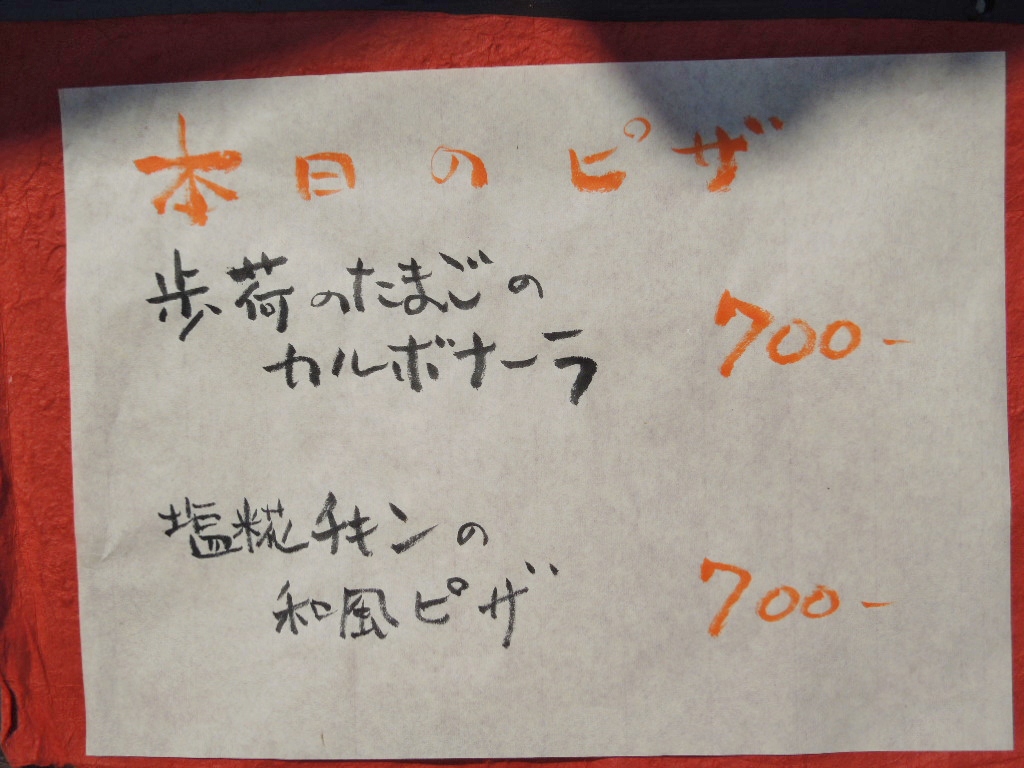 本日のピザ
歩荷のたまごの
カルボナーラ
700-
塩糀チキンの
和風ピザ
700-